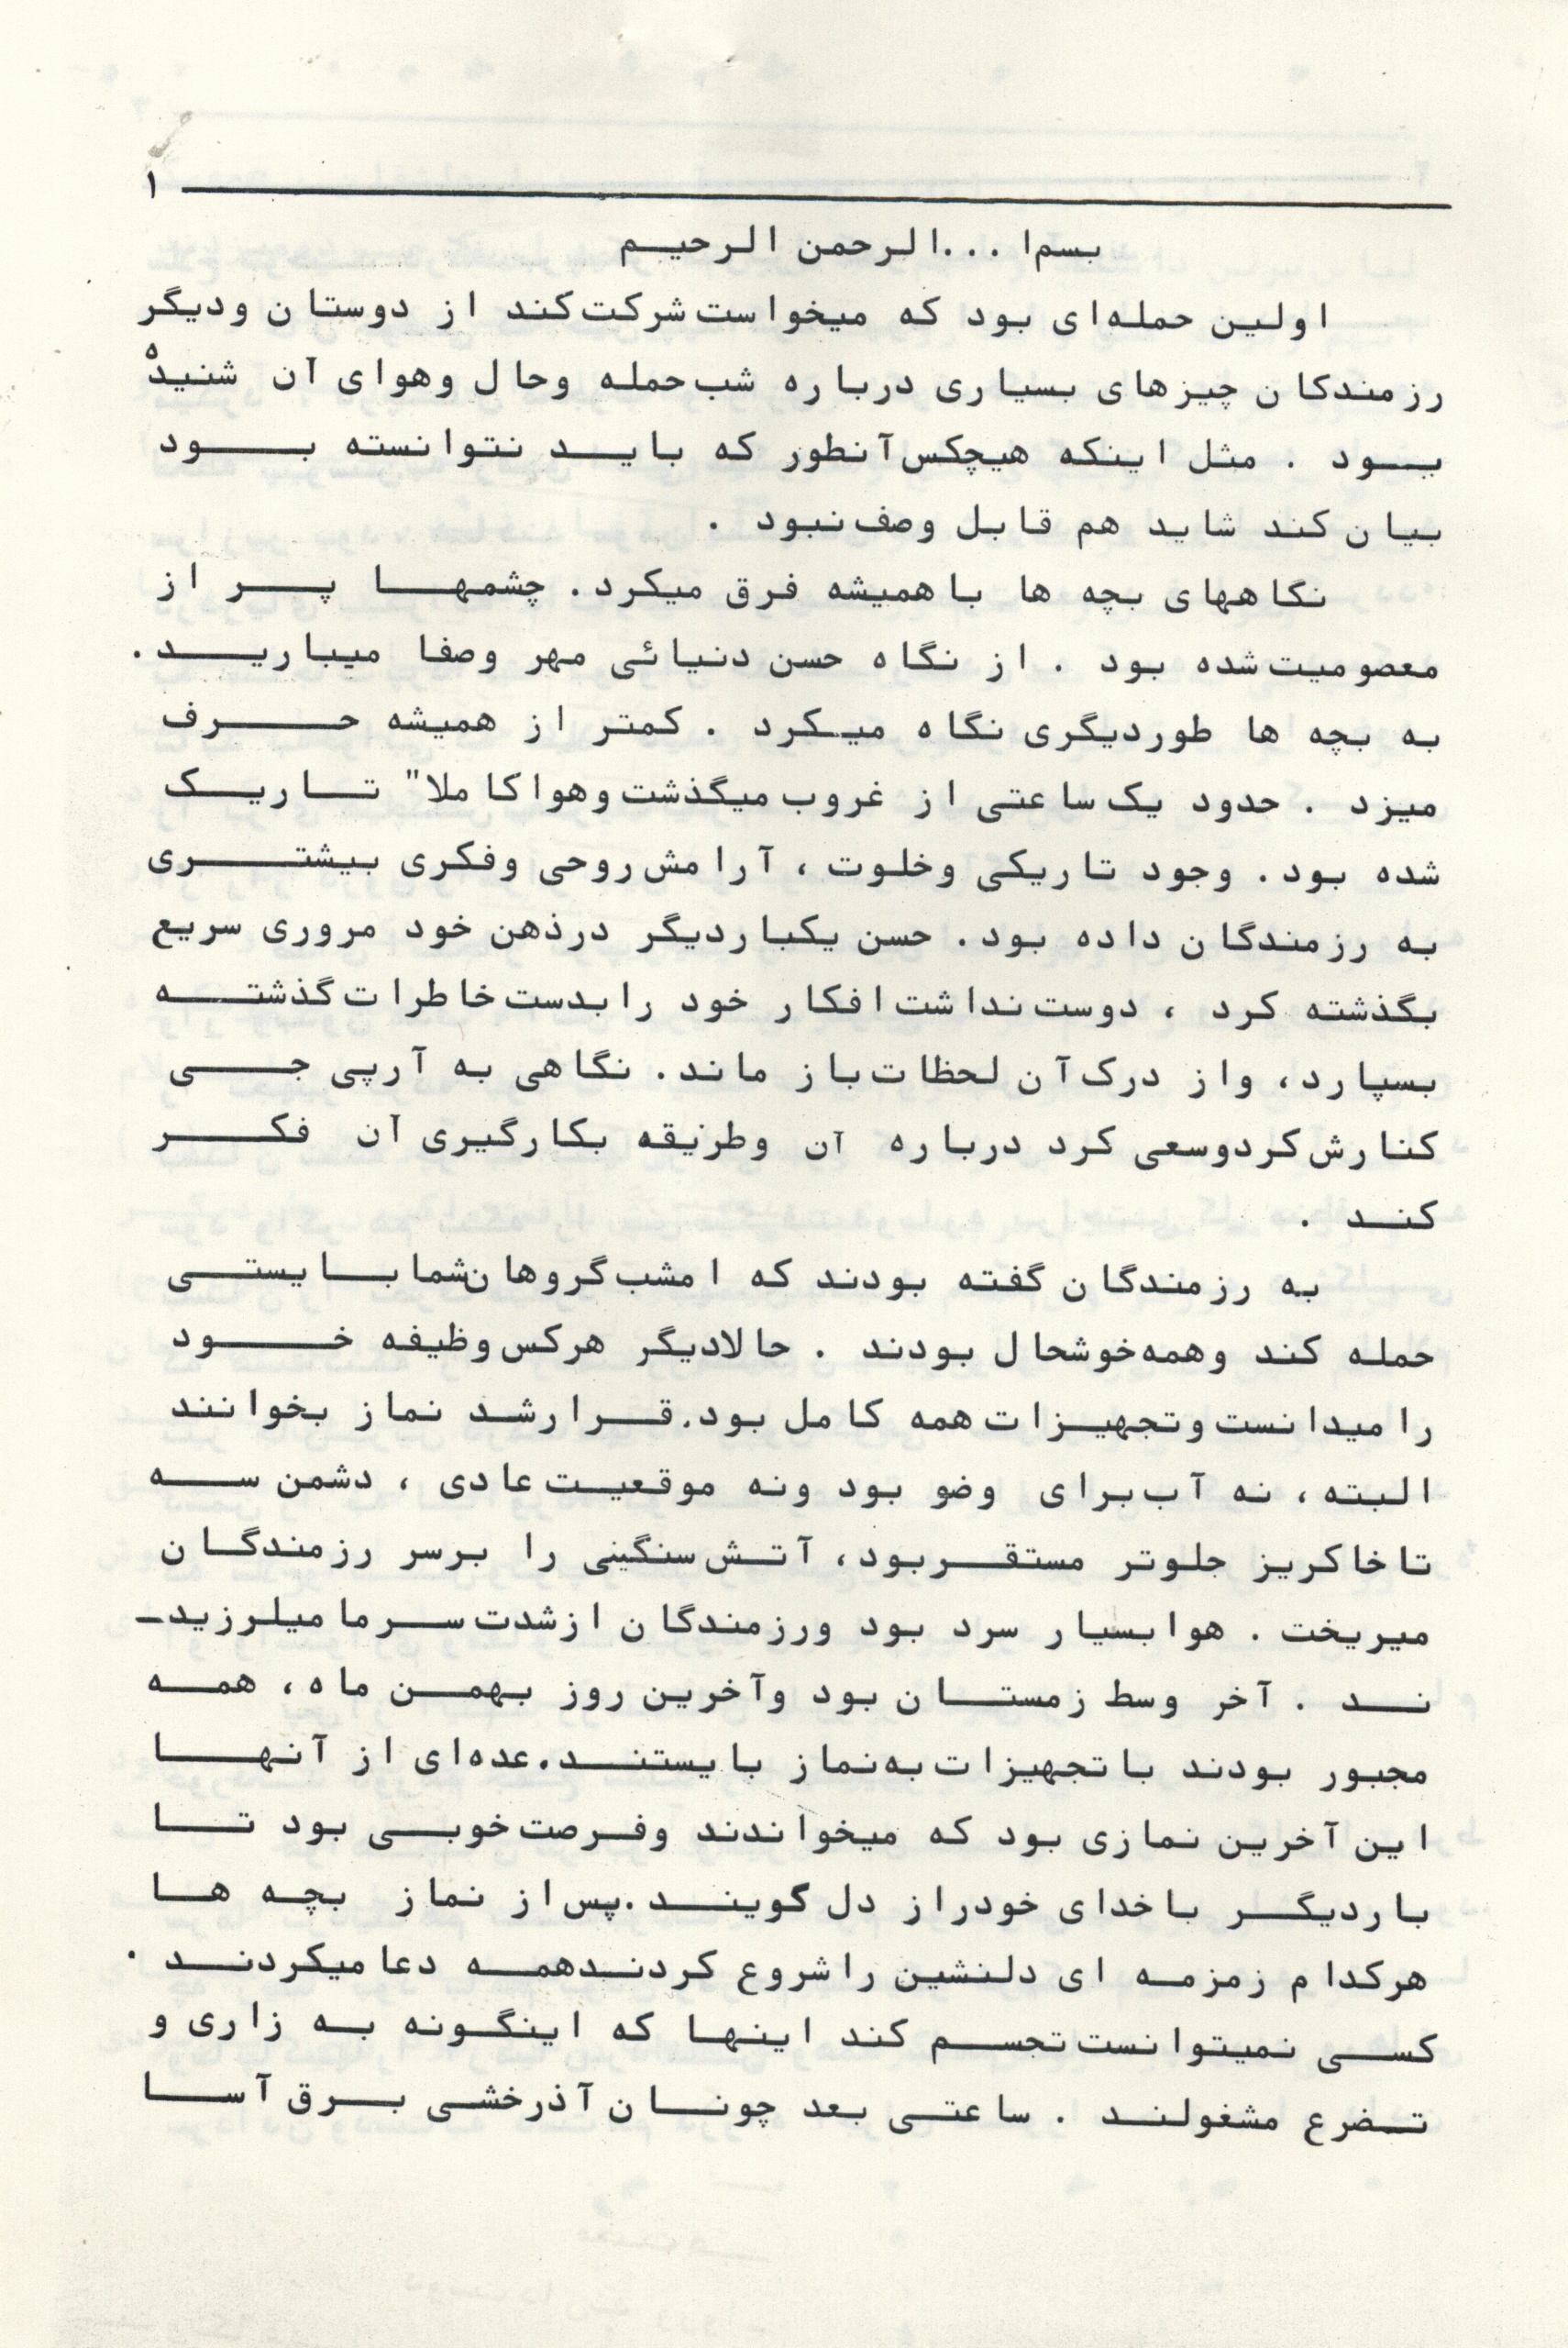 ۱
بسم‌ا ...الرحمن الرحیم
اولین حمله‌ای بود که میخواست شرکت کند از دوستان ودیگر
رزمندکان چیزهای بسیاری درباره شب حمله وحال وهوای آن شنیده
بود . مثل اینکه هیچکس آنطور که باید نتوانسته بود
بیان کند شاید هم قابل وصف نبود .
نکاههای بچه ها با همیشه فرق میکرد. چشمها پر از
معصومیت شده بود . از نگاه حسن دنیائی مهر وصفا میبارید.
به بچه ها طوردیگری نگاه میکرد . کمتر از همیشه حرف
میزد . حدود یک ساعتی از غروب میگذشت وهوا کاملا" تاریک
شده بود. وجود تاریکی وخلوت ، آرامش روحی وفکری بیشتری
به رزمندگان داده بود. حسن یکباردیگر درذهن خود مروری سریع
بگذشته کرد ، دوست نداشت افکار خود را بدست خاطرات گذشته
بسپارد، واز درک آن لحظات باز ماند. نگاهی به آرپی جی
کنارش کردوسعی کرد درباره آن وطریقه بکارگیری آن فکر
کند .
به رزمندگان گفته بودند که امشب گروهان شما بایستی
حمله کند وهمه خوشحال بودند . حالادیگر هرکس وظیفه خود
را میدانست وتجهیزات همه کامل بود.قرارشد نماز بخوانند
البته، نه آب برای وضو بود ونه موقعیت عادی ، دشمن سه
تا خاکریز جلوتر مستقربود، آتش سنگینی را برسر رزمندگان
میریخت . هوا بسیار سرد بود ورزمندگان ازشدت سرما میلرزید-
ند . آخر وسط زمستان بود وآخرین روز بهمن ماه، همه
مجبور بودند با تجهیزات به نماز بایستند.عده‌ای از آنها
این آخرین نمازی بود که میخواندند وفرصت خوبی بود تا
باردیگر باخدای خودراز دل گویند.پس از نماز بچه ها
هرکدام زمزمه ای دلنشین را شروع کردندهمه دعا میکردند .
کسی نمیتوانست تجسم کند اینها که اینگونه به زاری و
تضرع مشغولند . ساعتی بعد چونان آذرخشی برق آسا